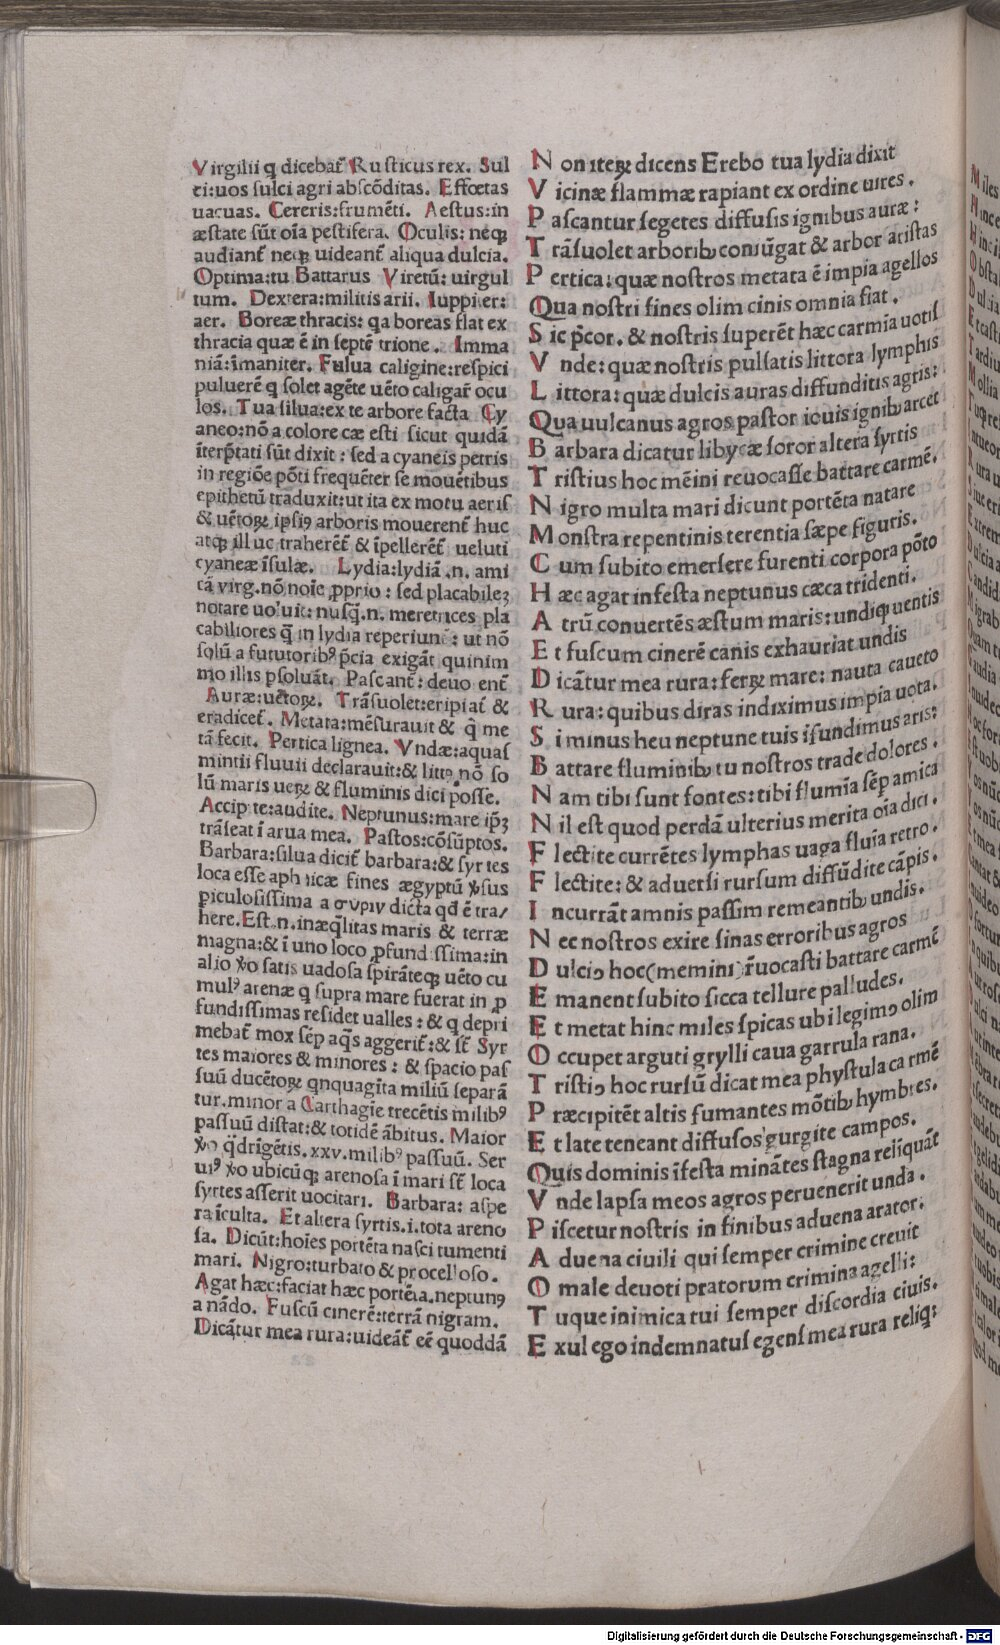 Virgilii q dicebat̃ Rusticus rex. Sul
ci:uos sulci agri abscõditas. Effœtas
uacuas. Cereris:frumẽti. Aestus:in
æstate sũt oĩa pestifera. Oculis: neqꝫ
audiant̃ neqꝫ uideant̃ aliqua dulcia.
Optima:tu Battarus Viretũ: uirgul
tum. Dextera:militis arii. Iuppiter:
aer. Boreæ thracis: qa boreas flat ex
thracia quæ ẽ in septẽ trione. Imma
niã:ĩmaniter. Fulua caligine:respici
puluerẽ q solet agẽte uẽto caligar̃ ocu
los. Tua silua:ex te arbore facta Cy
aneo:nõ a colore cæ esti sicut quidã
ĩterp̃tati sũt dixit: sed a cyaneis petris
in regiõe põti frequẽter se mouẽtibus
epithetũ traduxit:ut ita ex motu aeris
& uẽtoꝝ ipsiꝰ arboris mouerent̃ huc
atqꝫ illuc traherẽt̃ & ĩpellerẽt̃ ueluti
cyaneæ ĩsulæ. Lydia:lydiã .n. ami
cã virg.nõ noĩe ꝓprio: sed placabileꝫ
notare uoluit: nusq̃.n. meretrices pla
cabiliores q̃ in lydia reperiunt̃: ut nõ
solũ a fututoribꝰ p̃cia exigãt quinim
mo illis ꝑsoluãt. Pascant̃: deuorent̃
Auræ:uẽtoꝝ. Trãsuolet:eripiat̃ &
eradicet̃. Metata:mẽsurauit & q̃ me
tã fecit. Pertica lignea. Vndæ:aquas
mintii fluuii declarauit:& litto nõ so
lũ maris ueꝝ & fluminis dici posse.
Accipite:audite. Neptunus:mare ip̃ꝫ
trãseat ĩ arua mea. Pastos:cõsũptos.
Barbara:silua dicit̃ barbara:& syrtes
loca esse aphricæ fines ægyptũ v̾sus
piculosissima a συριν dicta qđ ẽ tra/
here. Est.n.inæq̃litas maris & terræ
magna:& ĩ uno loco ꝓfundissima:in
alio v̾o satis uadosa spirãteqꝫ uẽto cu
mulꝰ arenæ q supra mare fuerat in ꝓ
fundissimas residet ualles: & q depri
mebat̃ mox sẽp aq̃s aggerit̃:& st̃ Syr
tes maiores & minores: & spacio pas
suũ ducẽtoꝝ qnquagĩta miliũ separã
tur.minor a Carthagĩe trecẽtis milibꝰ
passuũ distat:& totidẽ ãbitus. Maior
v̾o q̃drĩgẽtis.xxv.milibꝰ passuũ. Ser
uiꝰ v̾o ubicũqꝫ arenosa ĩ mari st̃ loca
syrtes asserit uocitari. Barbara: aspe
ra ĩculta. Et altera syrtis.i.tota areno
sa. Dicũt:hoĩes portẽta nasci tumenti
mari. Nigro:turbato & procelloso.
Agat hæc:faciat hæc portẽta.neptunꝰ
a nãdo. Fuscũ cinerẽ:terrã nigram.
Dicãtur mea rura:uideãt̃ eẽ quoddã
Non iteꝝ dicens Erebo tua lydia dixit
Vicinæ flammæ rapiant ex ordine uires.
Pascantur segetes diffusis ignibus auræ:
Trãsuolet arboribꝫ coniũgat & arbor aristas
Pertica: quæ nostros metata ẽ impia agellos
Qua nostri fines olim cinis omnia fiat.
Sic p̃cor. & nostris superẽt hæc carmia uotis
Vnde: quæ nostris pulsatis littora lymphis
Littora: quæ dulcis auras diffunditis agris:
Qua uulcanus agros pastor iouis ignibꝫ arcet
Barbara dicatur libycæ soror altera syrtis
Tristius hoc mẽini reuocasse battare carmẽ.
Nigro multa mari dicunt portẽta natare
Monstra repentinis terentia sæpe figuris.
Cum subito emersere furenti corpora põto
Hæc agat infesta neptunus cæca tridenti.
Atrũ conuertẽs æstum maris: undiqꝫ uentis
Et fuscum cinerẽ canis exhauriat undis
Dicãtur mea rura: ferꝝ mare: nauta caueto
Rura: quibus diras indiximus impia uota.
Si minus heu neptune tuis ĩfundimus aris:
Battare fluminibꝫ tu nostros trade dolores.
Nam tibi sunt fontes: tibi flumĩa sẽp amica
Nil est quod perdã ulterius merita oĩa dici.
Flectite currẽtes lymphas uaga fluĩa retro.
Flectite: & aduersi rursum diffũdite cãpis.
Incurrãt amnis passim remeantibꝫ undis.
Nec nostros exire sinas erroribus agros
Dulciꝰ hoc(memini)r̃uocasti battare carmẽ
Emanent subito sicca tellure palludes.
Et metat hinc miles spicas ubi legimꝰ olim
Occupet arguti grylli caua garrula rana.
Tristiꝰ hoc rursũ dicat mea phystula carmẽ
Præcipitẽt altis fumantes mõtibꝫ hymbres.
Et late teneant diffusos gurgite campos.
Quis dominis ĩfesta minãtes stagna reliquãt
Vnde lapsa meos agros peruenerit unda.
Piscetur nostris in finibus aduena arator.
Aduena ciuili qui semper crimine creuit
O male deuoti pratorum crimina agelli:
Tuque inimica tui semper discordia ciuis.
Exul ego indemnatus egens mea rura reliq:
Digitalisierung gefördert durch die Deutsche Forschungsgemeinschaft - DFG